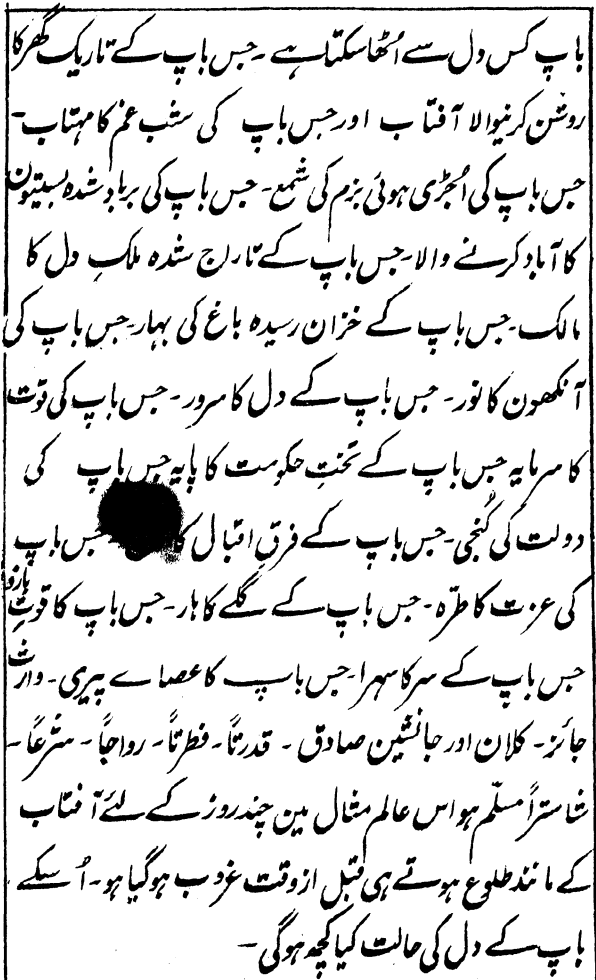 باپ کس دل سے اُٹھا سکتا ہے۔ جس باپ کے تاریک گھر کا
روشن کرنیوالا آفتاب اور جس باپ کی شب غم کا مہتاب۔
جس باپ کی اُجڑی ہوئی بزم کی شمع۔ جس باپ کی برباد شدہ بستیون
کا آباد کرنے والا۔ جس باپ کے تاراج شدہ ملکِ دل کا
مالک۔ جس باپ کے خزان رسیدہ باغ کی بہار۔ جس باپ کی
آنکھون کا نور۔ جس باپ کے دل کا سرور۔ جس باپ کی قوت
کا سرمایہ جس باپ کے تختِ حکومت کا پایہ جس باپ کی
دولت کی کُنجی۔ جس باپ کے فرقِ اقبال کا جس باپ
کی عزت کا طرّہ۔ جس باپ کے گلے کا ہار۔ جس باپ کا قوتِ بازو
جس باپ کے سر کا سہرا۔ جس باپ کا عصاے پیری۔ وارث
جائز۔ کلان اور جانشین صادق۔ قدرتاً۔ فطرتاً۔ رواجاً۔ شرعاً۔
شاستراً مسلّم ہو اس عالم مثال مین چند روز کے لئے آفتاب
کے مانند طلوع ہوتے ہی قبل از وقت غروب ہو گیا ہو۔ اُسکے
باپ کے دل کی حالت کیا کچھ ہوگی۔